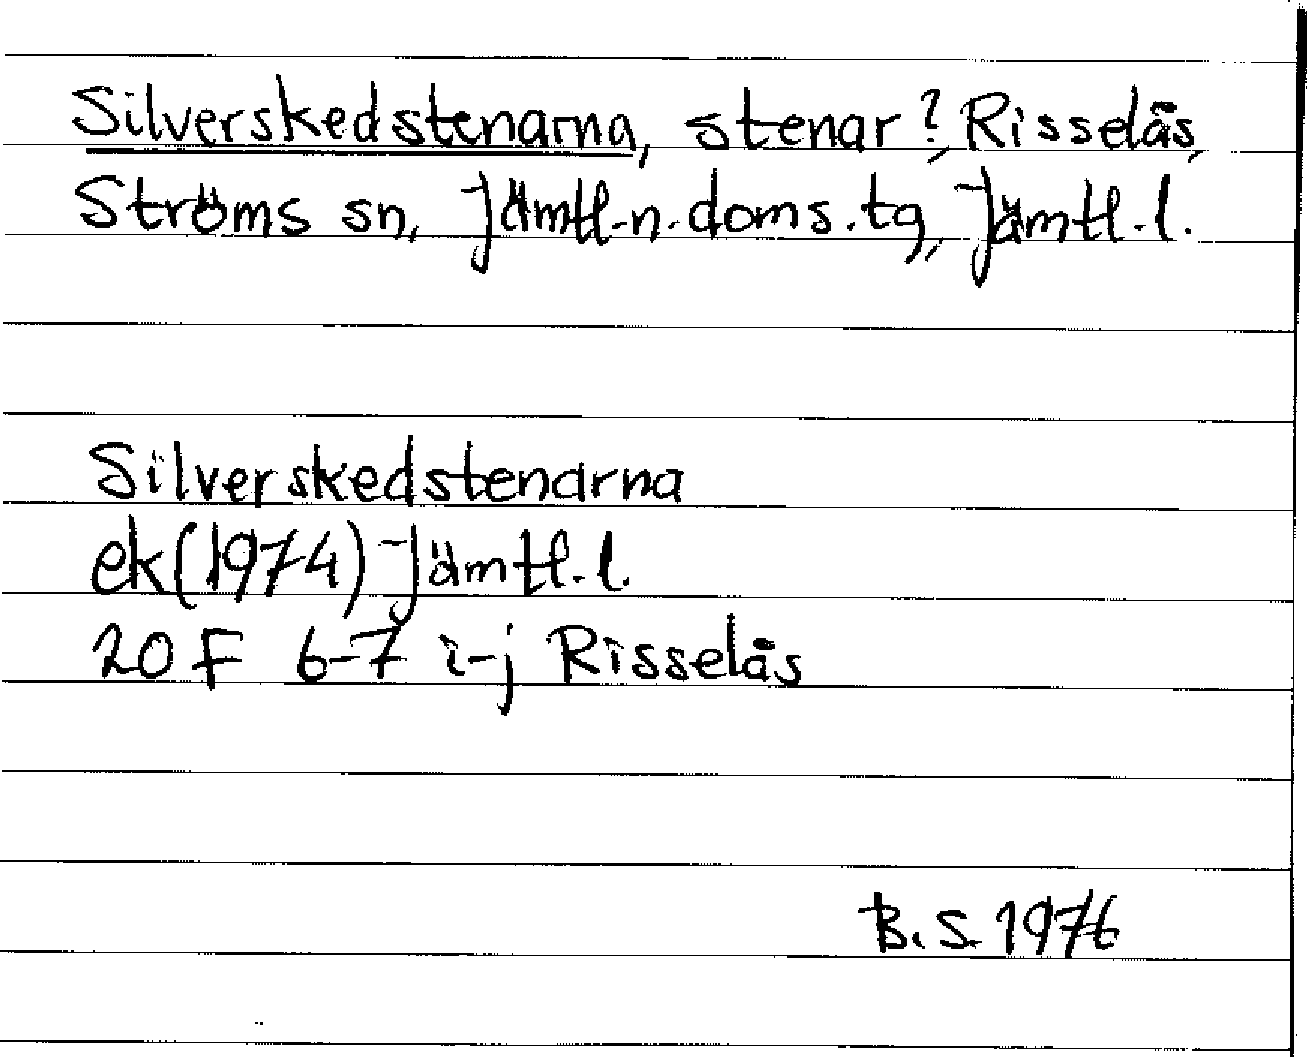 Silverskedstenarna, stenar?, Risselås,
Ströms sn, Jämtl.n.doms.tg, Jämtl.l.
Silverskedstenarna
ek(1974) Jämtl.l.
20 F 6-7 i-j Risselås
B.S. 1976